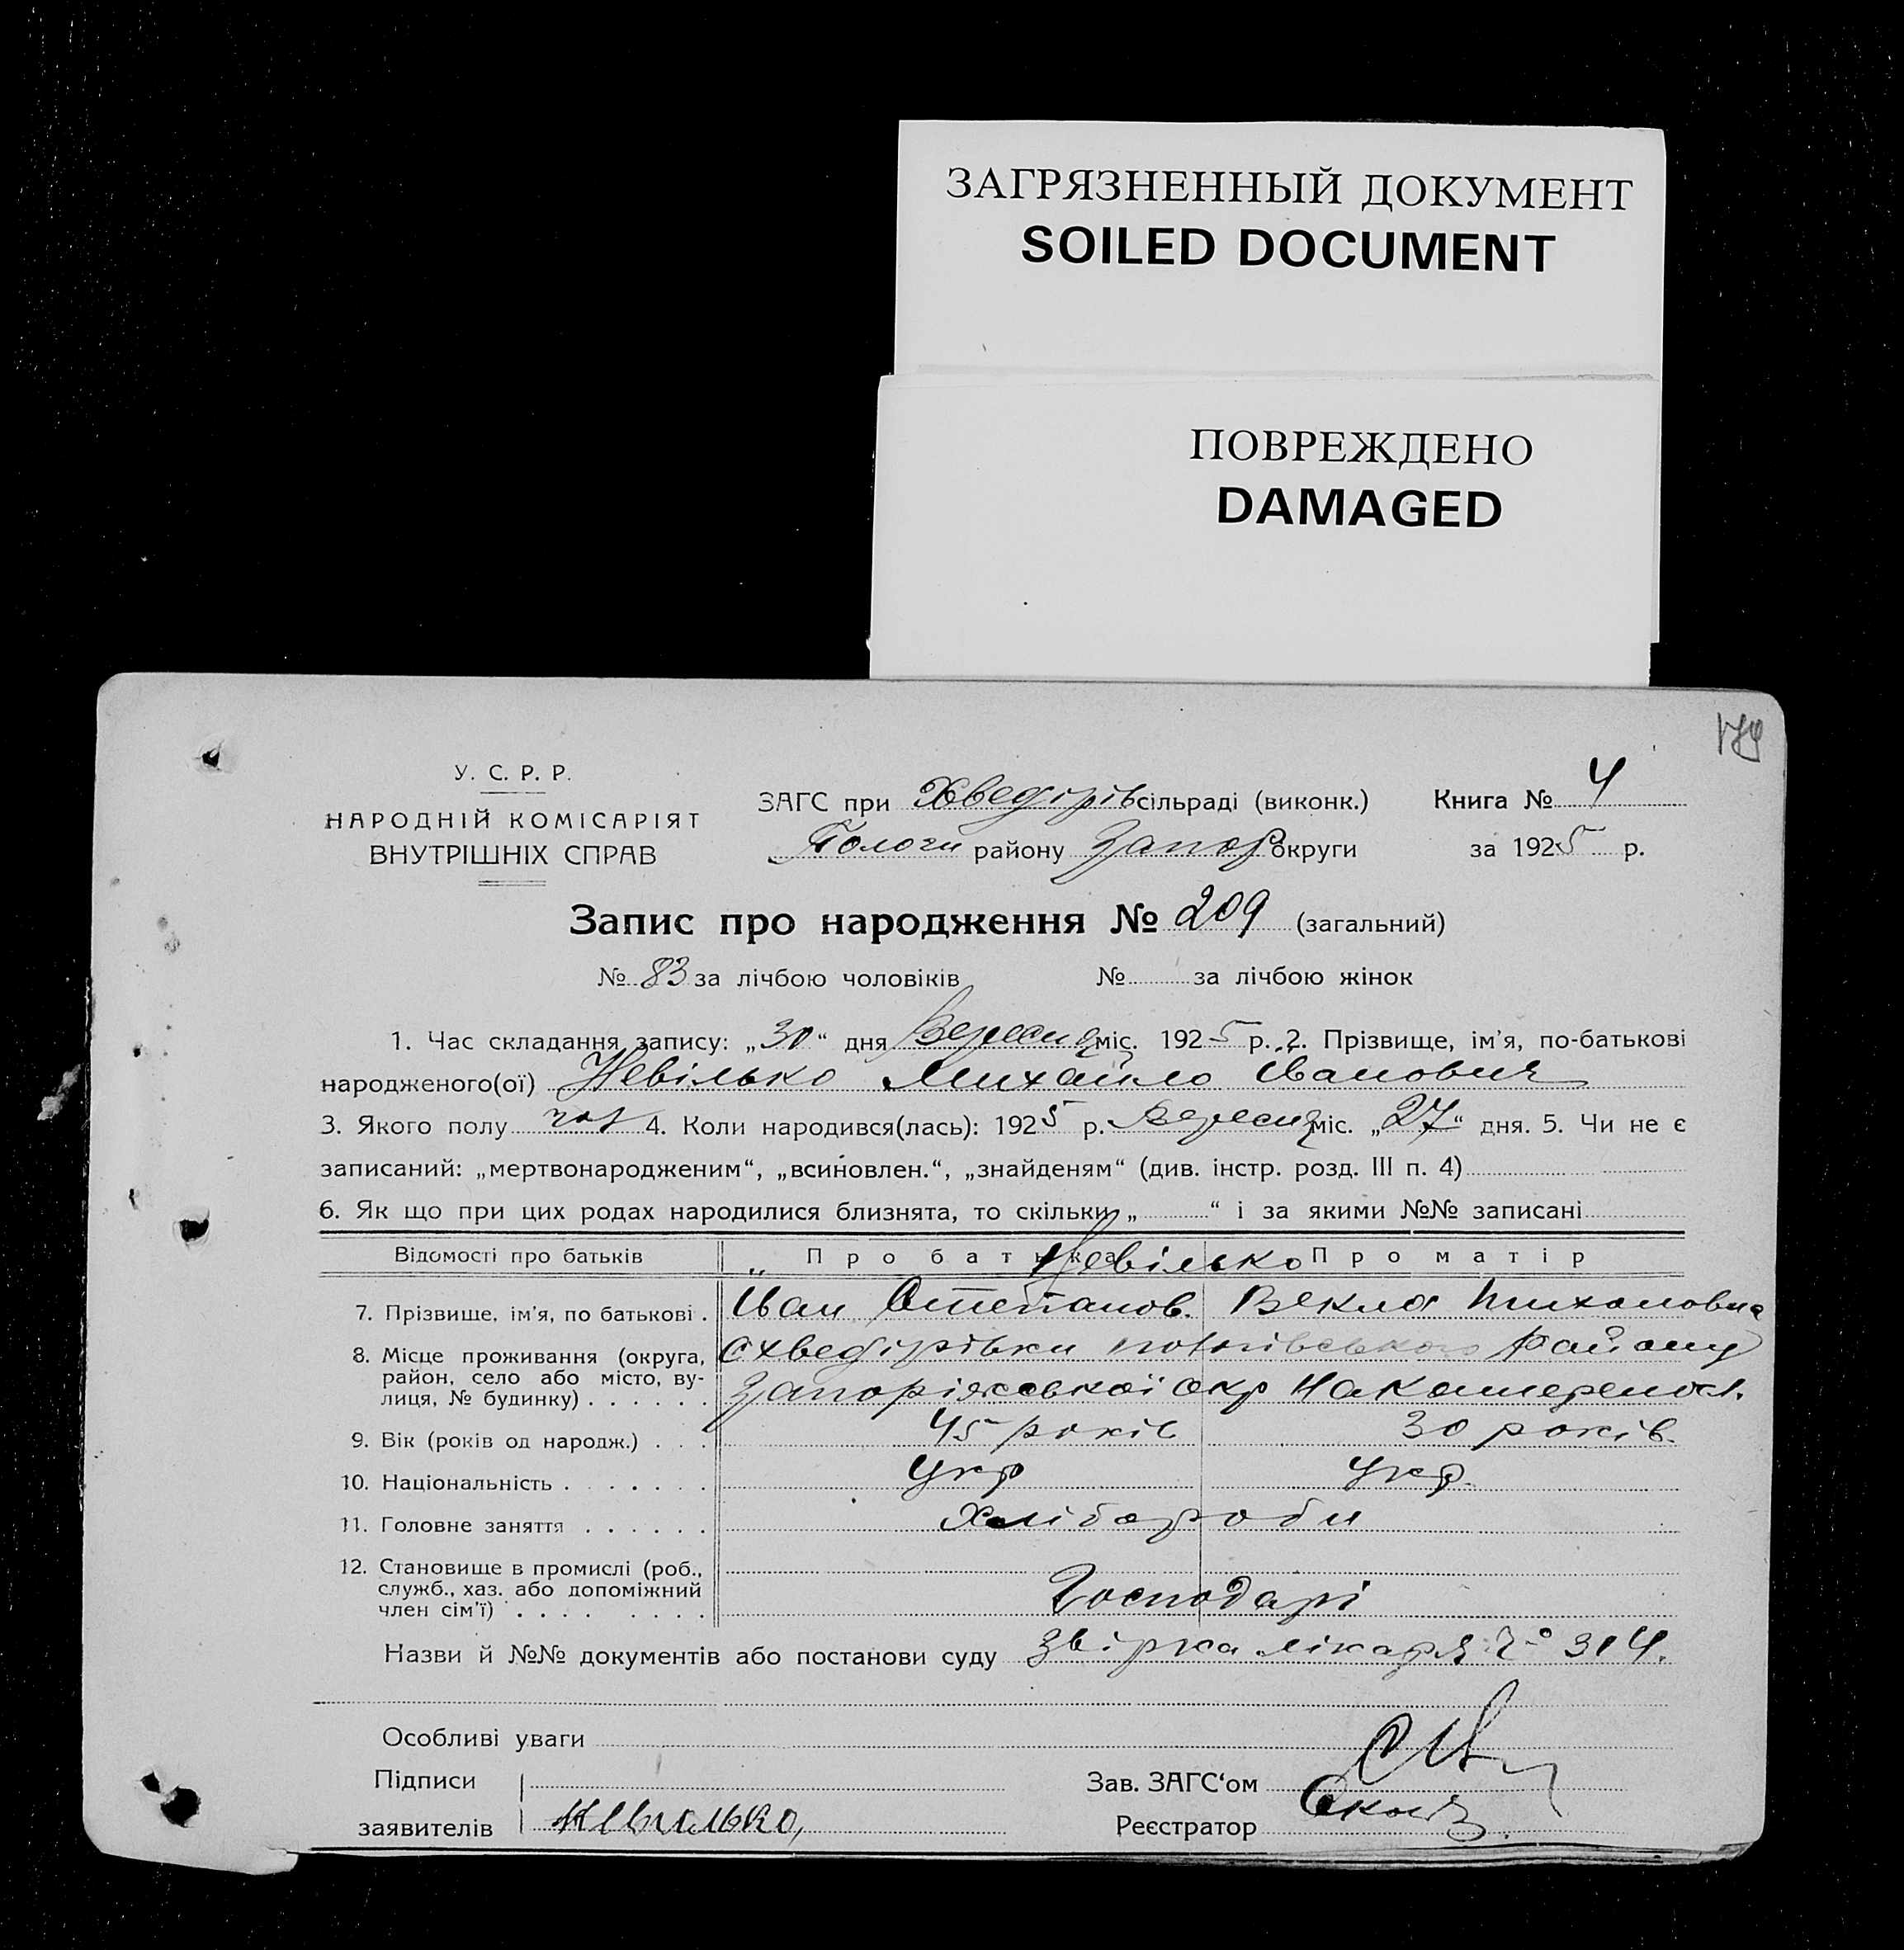 ЗАГРЯЗНЕННЫЙ ДОКУМЕНТ
SOILED DOCUMENT
ПОВРЕЖДЕНО
DAMAGED
179
У. С. Р. Р.
НАРОДНІЙ КОМІСАРІЯТ
ВНУТРІШНІХ СПРАВ
ЗАГС при Хведірів сільраді (виконк.) Книга № 4
Пологи району Запор округи за 1925 р.
Запис про народження № 209 (загальний)
№ 83 за лічбою чоловіків № за лічбою жінок
1. Час складання запису: „30“ дня Вересня міс. 1925 р. 2. Прізвище, ім’я, по-батькові
народженого(ої) Невілько Михайло Іванович
3. Якого полу чол 4. Коли народився(лась): 1925 р. Вересня міс. „27“ дня. 5. Чи не є
записаний: „мертвонародженим“, „всиновлен.“, „знайденям“ (див. інстр. розд. III п. 4)
6. Як що при цих родах народилися близнята, то скільки „ “ і за якими №№ записані
Відомості про батьків Про батька Невілько Про матір
7. Прізвище, ім’я, по батькові . Иван Степанов. Векла Тихоновна
8. Місце проживання (округа, с хведірівки пологівського району
район, село або місто, ву-
лиця, № будинку) . . . . . . Запоріжської окр
9. Вік (років од народж.) . . . 45 років 30 років.
10. Національність . . . . . . . Укр Укр.
11. Головне заняття . . . . . . Хлібороби
12. Становище в промислі (роб.,
служб., хаз. або допоміжний
член сім’ї) . . . . . . . . Господарі
Назви й №№ документів або постанови суду звірка лікаря № 314.
Особливі уваги
Підписи Зав. ЗАГС‘ом
заявителів Невилько, Реєстратор